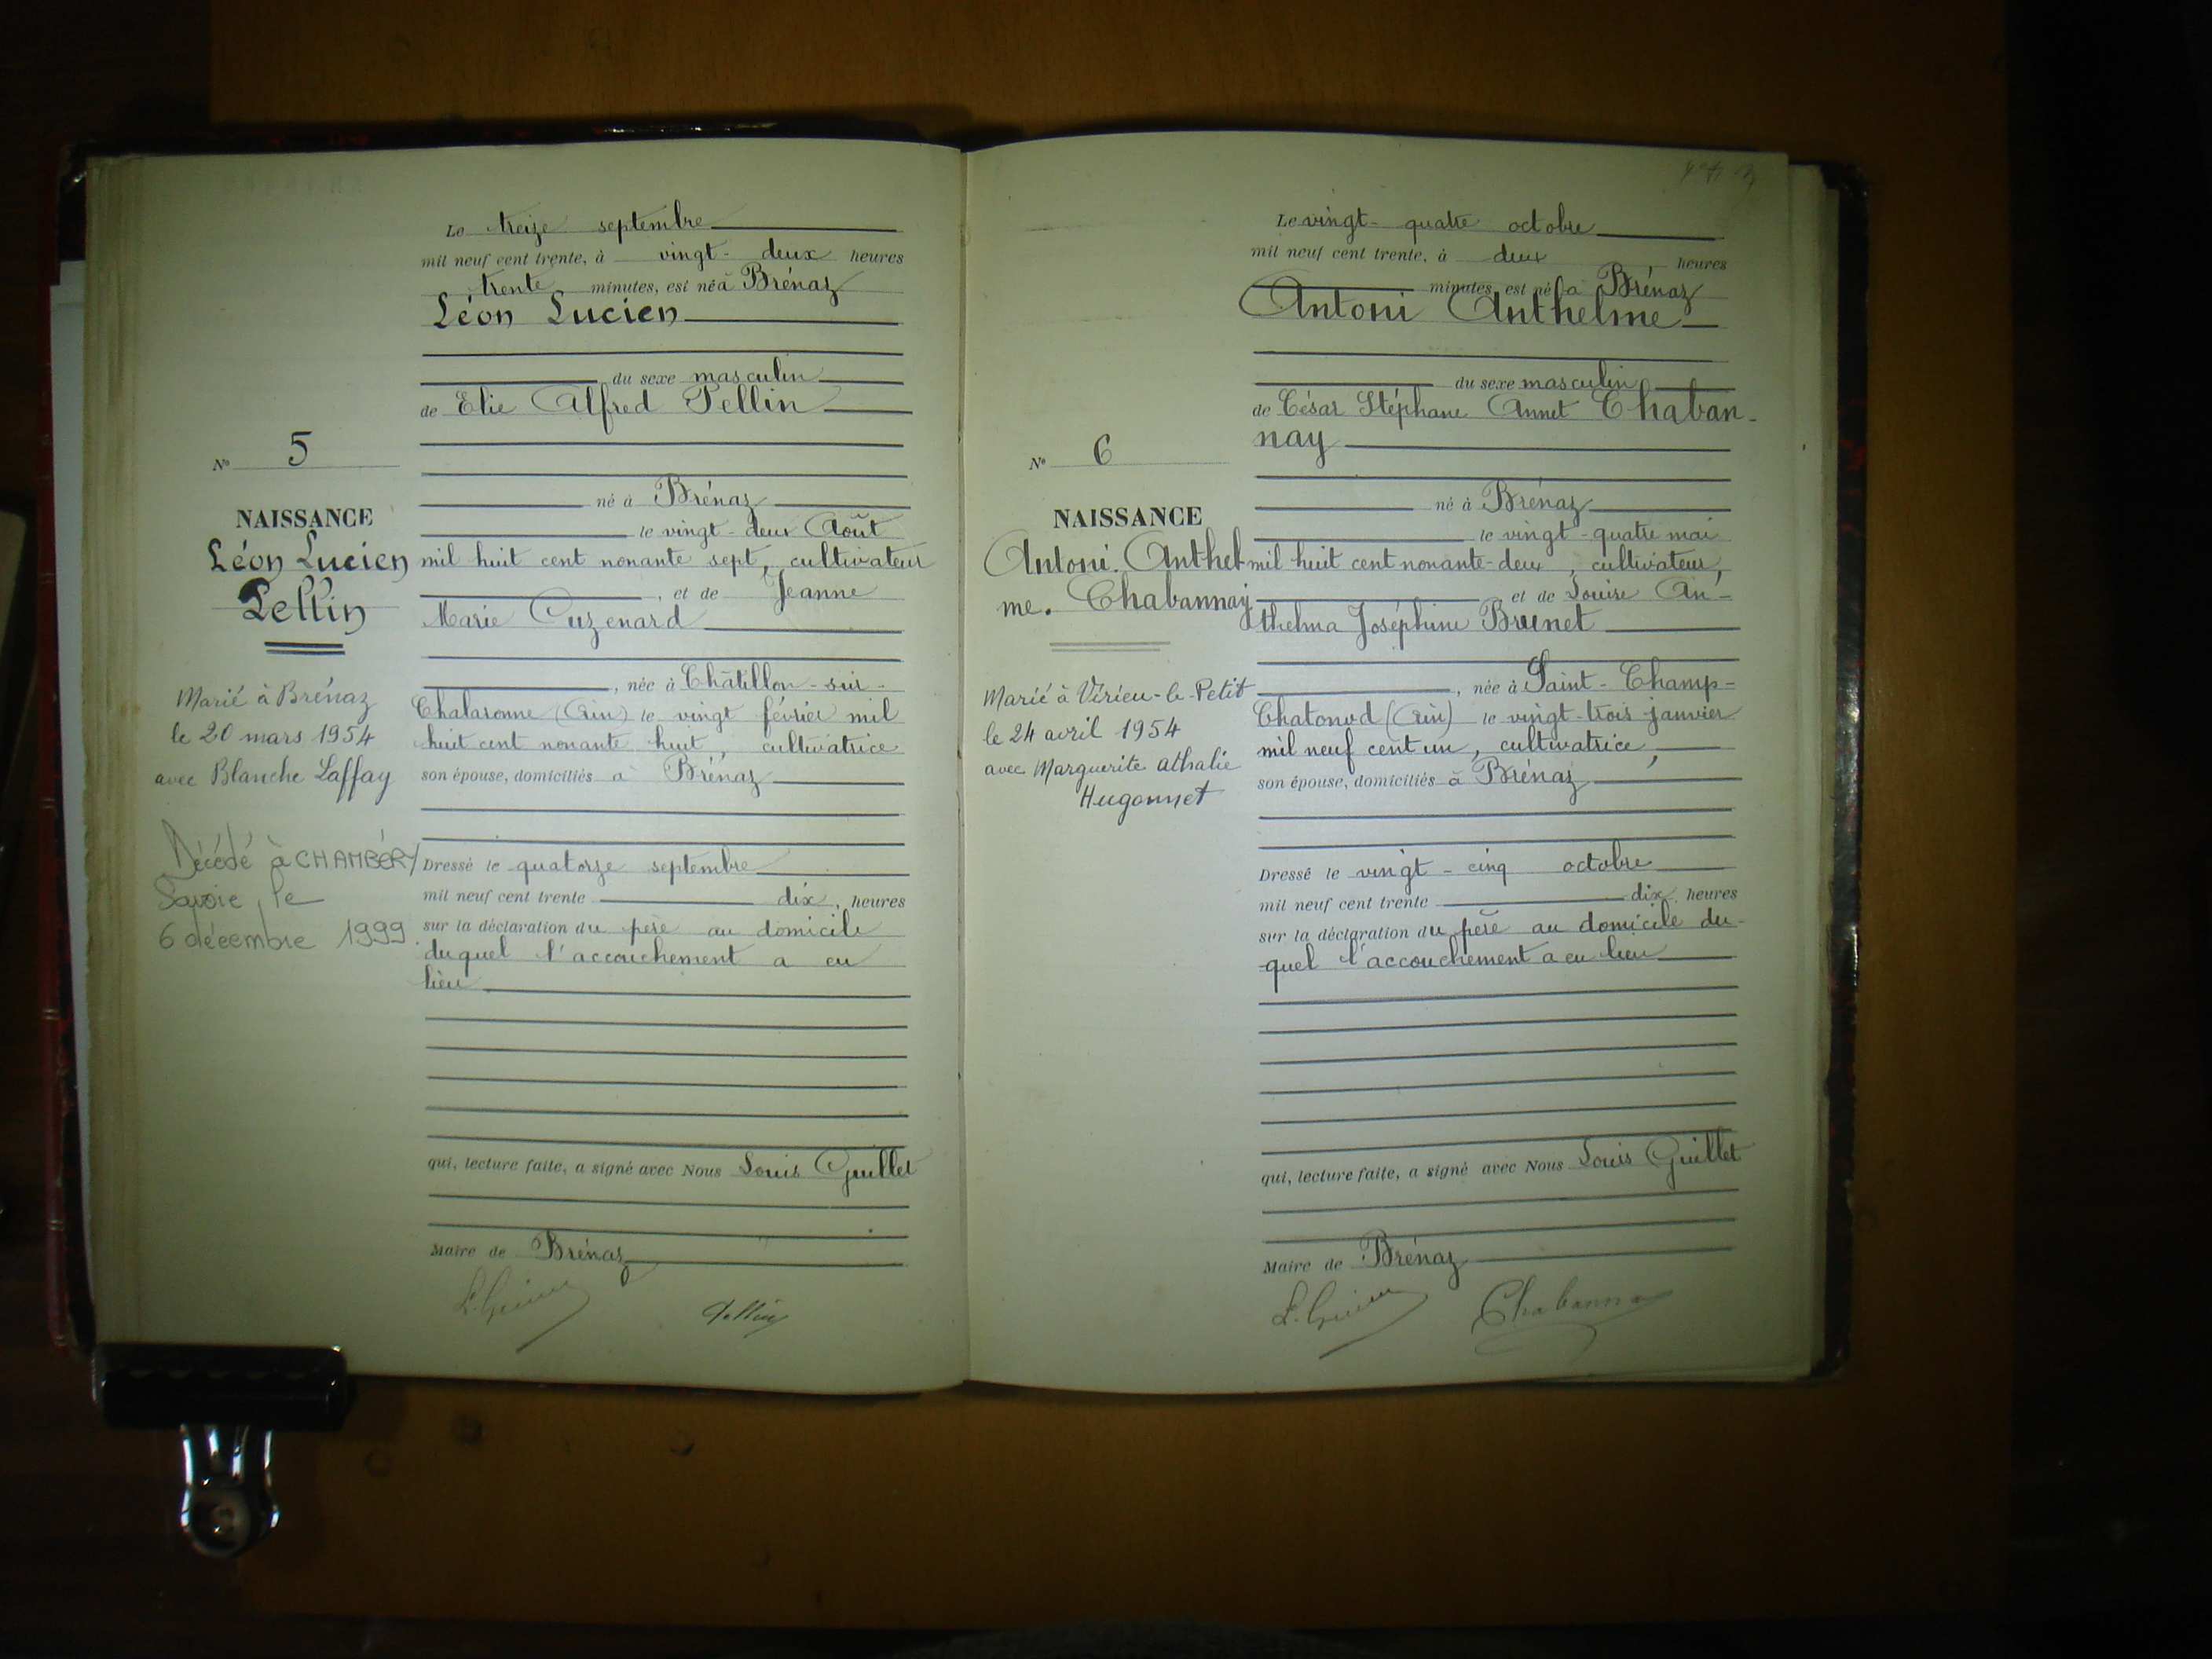 Le treize septembre
mil neuf cent trente, à vingt-deux heures
trente minutes, est né à Brénaz
Léon Lucien
du sexe masculin
de Elie Alfred Pellin
né à Brénaz
le vingt-deux Août
mil huit cent nonante sept, cultivateur
, et de Jeanne
Marie Cuzenard
, née à Châtillon-sur-
Chalaronne (Ain) le vingt février mil
huit cent nonante huit, cultivatrice
son épouse, domiciliés à Brénaz
Dressé le quatorze septembre
mil neuf cent trente dix, heures
sur la déclaration du père au domicile
duquel l'accouchement a eu
lieu
qui, lecture faite, a signé avec Nous Louis Guillet
Maire de Brénaz
Pellin
N° 5
NAISSANCE
Léon Lucien
Pellin
Marié à Brénaz
le 20 mars 1954
avec Blanche Laffay
Décédé à CHAMBÉRY
Savoie, le
6 décembre 1999.
Le vingt-quatre octobre
mil neuf cent trente, à deux heures
minutes, est né à Brénaz
Antoni Anthelme
du sexe masculin
de César Stéphane Annet Chaban-
nay
né à Brénaz
le vingt-quatre mai
mil huit cent nonante-deux, cultivateur,
et de Louise An-
thelma Joséphine Brunet
, née à Saint-Champ-
Chatonod (Ain) le vingt-trois janvier
mil neuf cent un, cultivatrice,
son épouse, domiciliés à Brénaz
Dressé le vingt-cinq octobre
mil neuf cent trente dix, heures
sur la déclaration du père au domicile du-
quel l'accouchement a eu lieu
qui, lecture faite, a signé avec Nous Louis Guillet
Maire de Brénaz
Chabannay
N° 6
NAISSANCE
Antoni. Anthel
me. Chabannay
Marié à Virieu-le-Petit
le 24 avril 1954
avec Marguerite Athalie
Hugonnet